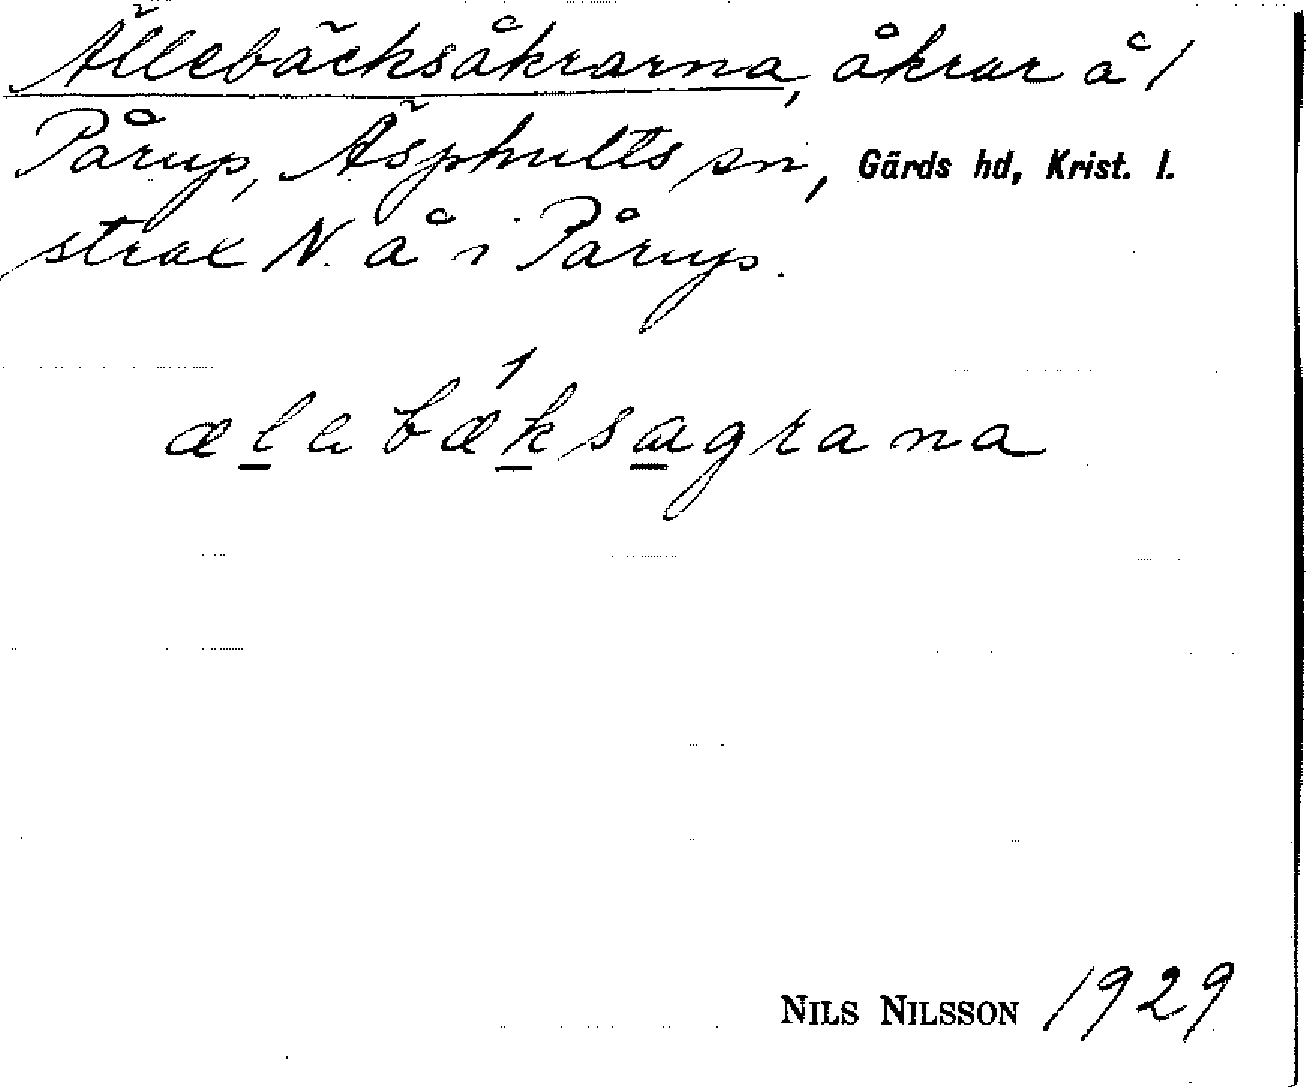 Ällebäcksåkrarna, åkrar å 1
Pårup, Äsphults sn, Gärds hd, Krist. l.
strax N. å i Pårup.
ælabæ1ksagrana
NILS NILSSON 1929